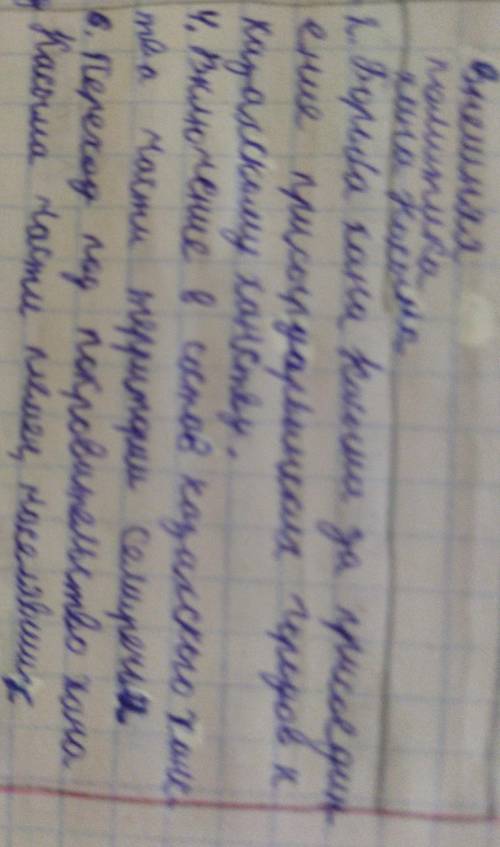 Внешняя
политика
хана Касыма
2. Борьба хана Касыма за присоедин
ение присырдарьинских городов к
казахскому ханству.
4. Включение в состав казахского ханс
тва части территории семиречья
6. Переход под покровительство хана
Касыма части племен, населявших